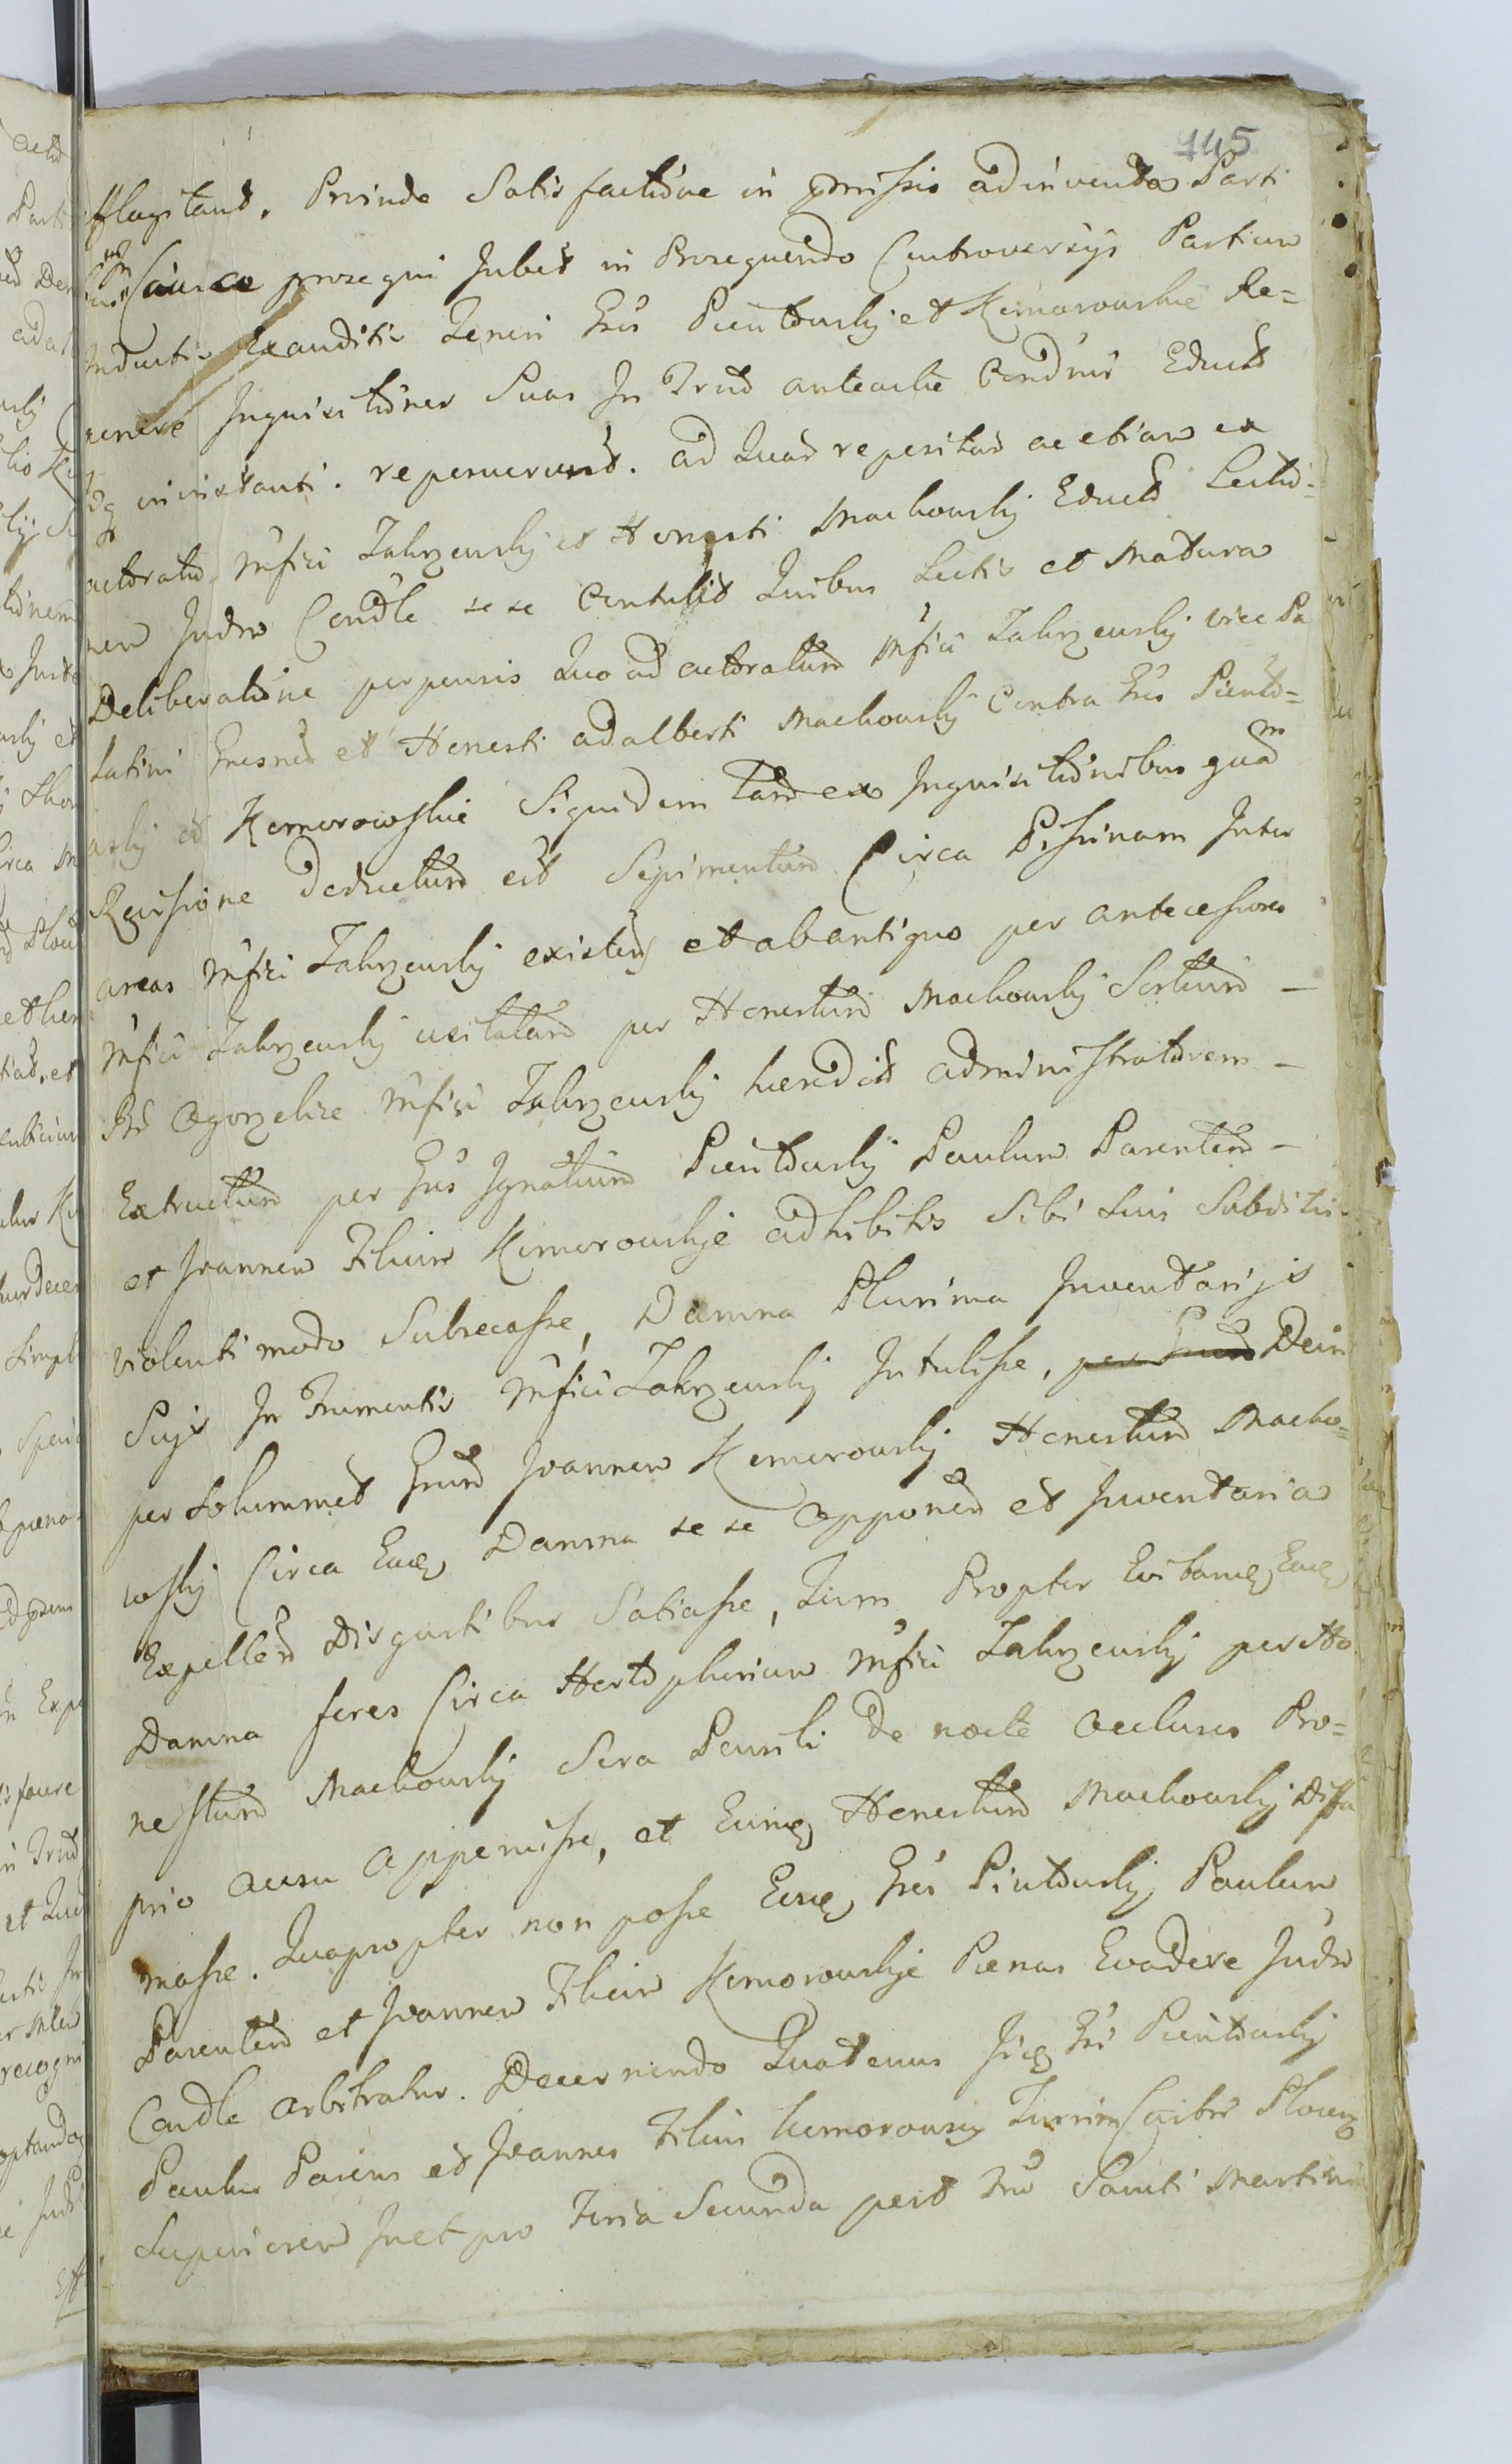 145
fflagitand. Proinde Satisfactione in pmissis adinventa Parti
Causae prosequi Jubet in Prosequendo Controversijs Partium
Inductis Exauditis Teneri Gros Pientowskj et Komorowskie Re=
ponere Inquisitiones Suas In Trud anteacte Condnis Educt
Idq in instanti. reposuerunt. ad Quas repositas ac etiam ex
actoratu Mfici Zakrzewskj et Honesti Machowskj Educt Lectio=
nem Judm Condle sese Contulit Quibus Lectis et Matura
Deliberatione perpensis Quo ad actoratum Mfici Zakrzewskj vice Pa
latini Gnesnen et Honesti adalberti Machowskj Contra Gros Piento=
wskj et Komorowskie Siquidem tam ex Inquisitionibus quam
Revisione deductum est Sepimentum Circa Pissinam Inter
areas Mfici Zakrzewskj existen et ab antiquo per antecessores
Mfici Zakrzewskj usitatum per Honestum Machowskj Sortium –
Bn Ogorzelice Mfici Zakrzewskj heredit administratorem –
Extructum per Gros Ignatium Pientowskj Paulum Parentem –
et Joannem Filium Komorowskje adhibitis Sibi Suis Subditis
violenti modo Subsecasse, Damna Plurima Inventarijs
Suis In Frumentis Mfici Zakrzewskj Intulisse, per Grum Dein
per Solummet Grum Joannem Komorowskj Honestum Macho=
wskj Circa Eaeq Damna sese Opponen et Inventaria
Expellen Disgustibus Satiasse, Tum Propter Evitan Eaeq
Damna fores Circa Hortophurium Mfici Zakrzewskj per Ho
nestum Machowskj Sera Pensili de nocte Occlusas Pro=
prio ausu aperuisse, et Eumq Honestum Machowskj Diffa
masse. Quapropter non posse Eosq Gros Pientowskj, Paulum
Parentem et Joannem Filium Komorowskje Poenas Evadere Judm
Condle arbitratur. Decernendo Quatenus Iiq Gri Pientowskj
Paulus Parens et Joannes Filius Komorowscy Turrim Castri Ploceng
Superiorem Inet pro Feria Secunda post Fm Sancti Martini